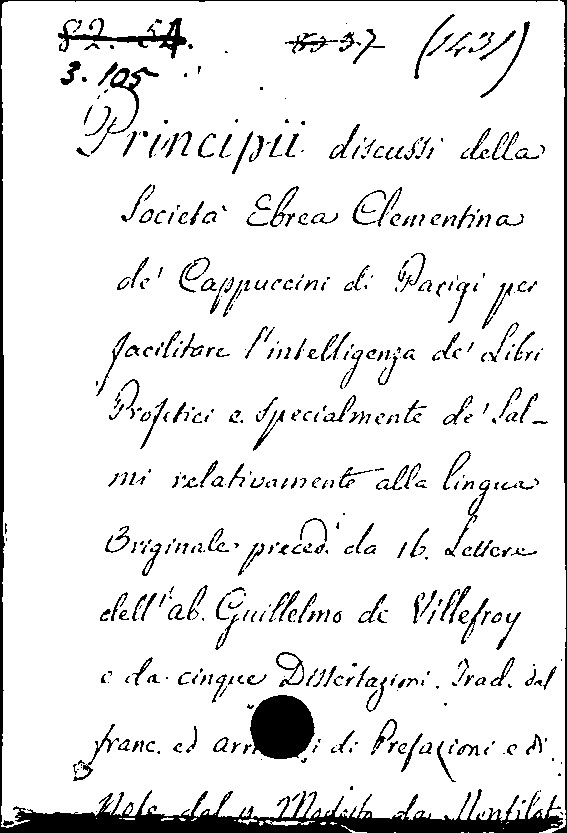 82. 54. 83 37 (1431)
3. 105
Principii discussi della
Società Ebrea Clementina
de' Cappuccini di Parigi per
facilitare l'intelligenza de' Libri
Profetici e specialmente de' Sal-
mi relativamente alla lingua
Originale preced. da 16. Lettere
dell'ab. Guillelmo de Villefroy
e da cinque Dissertazioni. Trad. dal
franc. ed di Prefazioni e di
Note dal p. Modesto da